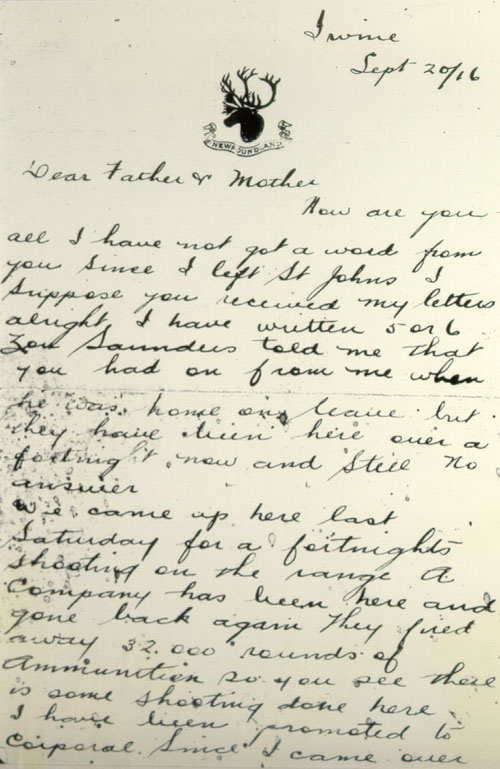 Irvine
Sept 20/16
NEWFOUNDLAND
Dear Father & Mother
How are you
all I have not got a word from
you since I left St Johns I
suppose you received my letters
alright I have written 5 or 6
Saunders told me that
you had on from me when
he was home on leave but
they have been here over a
fortnight now and still no
answer
we came up here last
Saturday for a fortnights
shooting on the range A
Company has been here and
gone back again they fired
away 32.000 rounds of
Ammunition so you see there
is some shooting done here
I have been promoted to
Corporal Since I came over